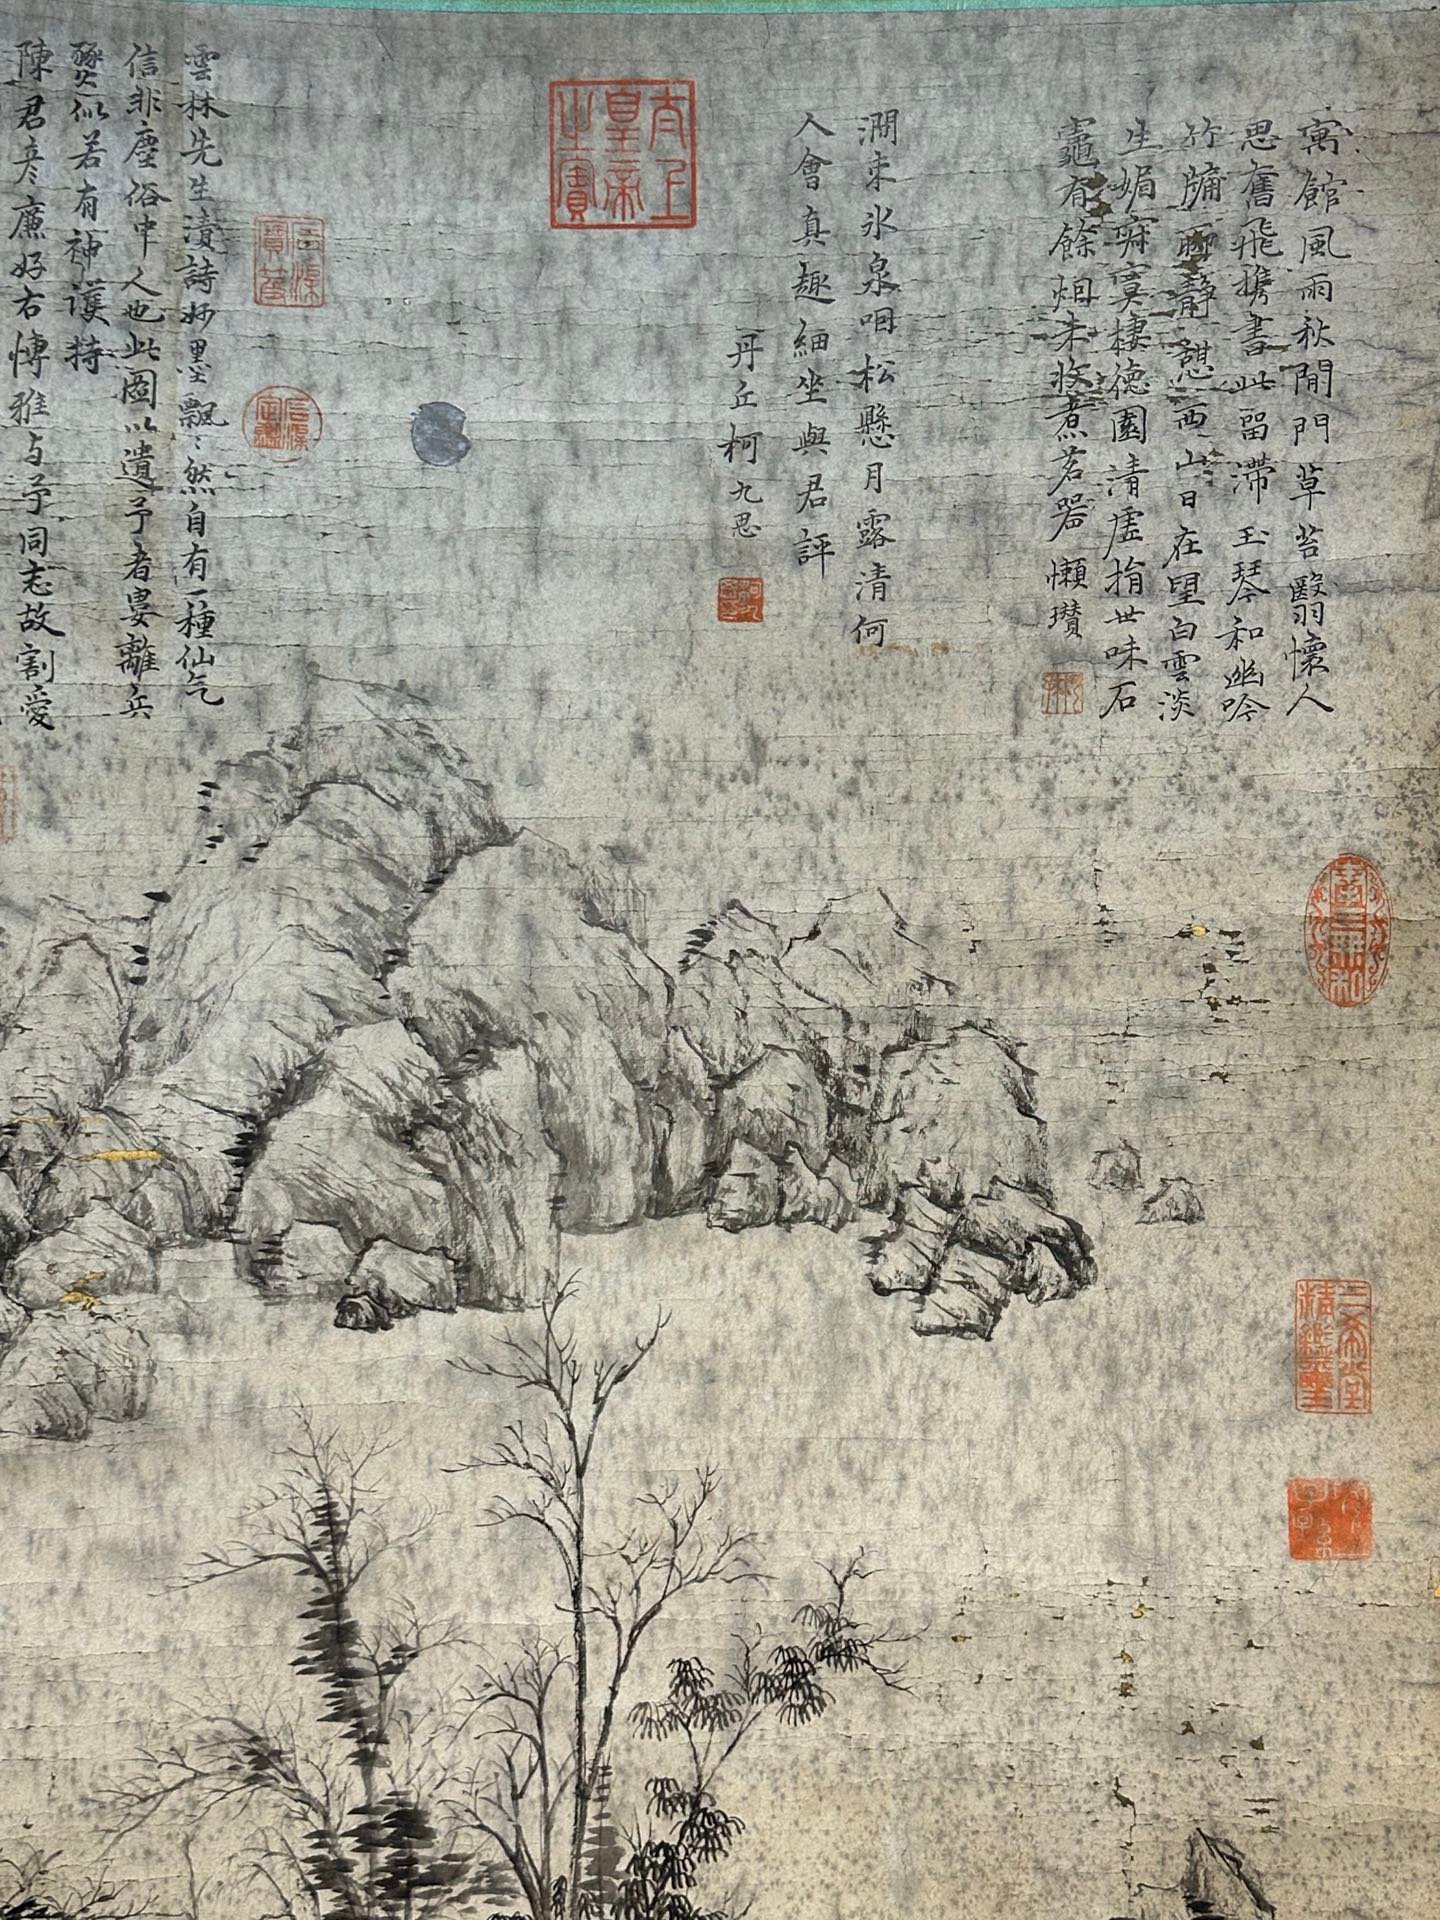 寓館風雨秋閒門草苔翳懷人
思舊飛携書此留滯玉琴和幽吟
竹牗聊靜憇西山日在望白雲淡
生媚寂寞棲德園清虛捐世味石
竈有餘烟未收煮茗器 懶瓚
澗束氷泉咽松懸月露清何
人會真趣細坐與君評
丹丘柯九思
太上
皇帝
之寳
雲林先生漬詩妙墨飄〻然自有一種仙气
信非塵俗中人也此圖以遺予者婁離兵
燹似若有神護持
陳君彥廉好古博雅与予同志故割愛
三希堂
精鑑璽
宜子
孫